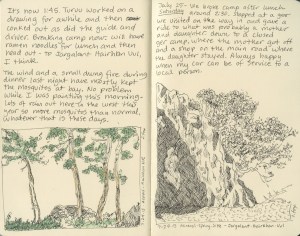 It's now 1:45. Turuu worked on a
drawing for awhile and then
conked out as did the guide and
driver. Breaking camp now; will have
ramen noodles for lunch and then
head out - to Zorgalant Hairkhan Uul,
I think.
The wind and a small dung fire during
dinner last night have mostly kept
the mosquitos at bay. No problem
while I was painting this morning-
lots of rain out here to the west this
year so more mosquitos than normal,
whatever that is these days.
July 25- We broke camp after lunch
around 2:30. Stopped at a ger
we visited on the way in and gave a
ride to what was probably a mother
and daughter down to a closed
ger camp, where the mother got off
and a shop on the main road where
the daughter stayed. Always happy
when my car can be of service to a
local person.
- Zorgalant Hairkhan Uul